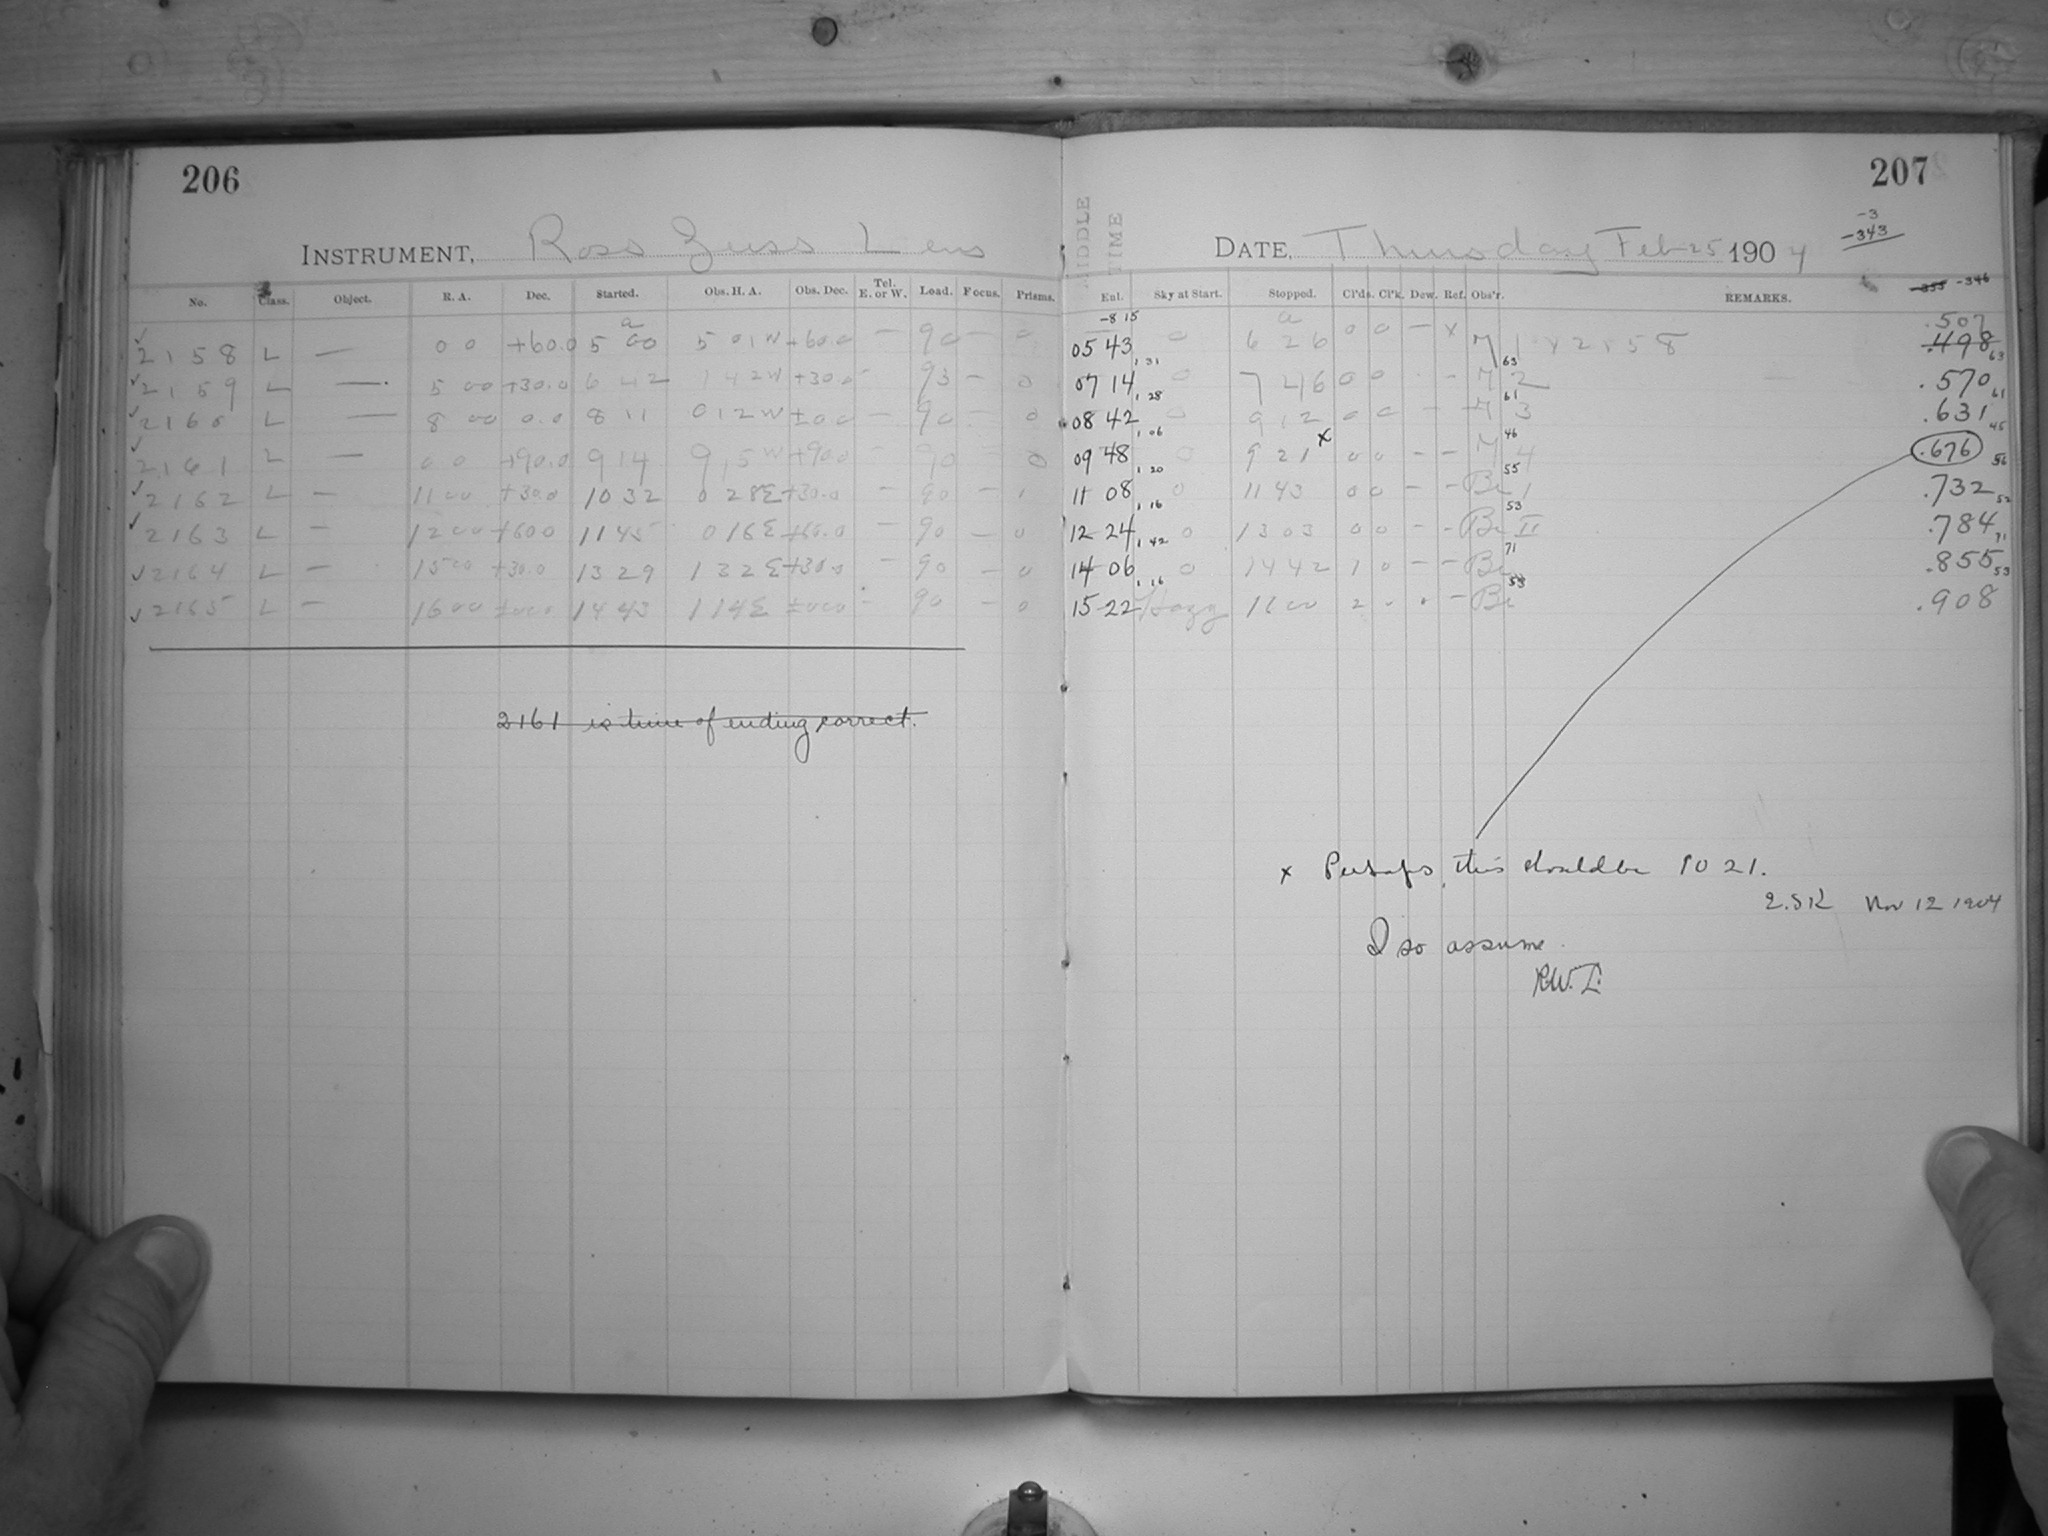 206
INSTRUMENT, Ross Zeiss Lens
No. Class. Object. R. A. Dec. Started. Obs. H. A. Obs. Dec. Tel. E. or W. Load. Focus. Prisms.
✓ 2158 L — 0 0 +60.0 5 a 00 5 01 W +60.0 — 90 — 0
✓ 2159 L — 5 00 +30.0 6 42 1 42 W +30.0 - 93 — 0
✓ 2160 L — 8 00 0.0 8 11 0 12 W ±0.0 — 90 — 0
✓ 2161 L — 0 0 +90.0 9 14 9 15 W +90.0 — 90 0
✓ 2162 L — 11 00 +30.0 10 32 0 28 E +30.0 — 90 — 1
✓ 2163 L — 12 00 +60.0 11 45 0 16 E +60.0 — 90 — 0
✓ 2164 L — 15 00 +30.0 13 29 1 32 E +30.0 — 90 — 0
✓ 2165 L — 16 00 ±00.0 14 43 1 14 E ±00.0 - 90 — 0
2161 is time of ending correct.
207
-3
-343
MIDDLE TIME
DATE, Thursday Feb 25 1904
-355 -346
Ent. Sky at Start. Stopped. Cl'ds. Cl'k. Dew. Ref. Obs'r. REMARKS.
-8 15
.507
05 43 1 31 0 6 a 26 0 0 — x 7 1 63 x 2158 .498 63
07 14 1 28 0 7 46 0 0 - - 7 2 61 .570 61
08 42 1 06 0 9 12 0 0 — - 7 3 46 .631 45
09 48 1 20 0 9 21 x 0 0 — — 7 4 55 .676 56
11 08 1 16 0 11 43 0 0 — — Be 1 53 .732 52
12 24 1 42 0 13 03 0 0 — - Be II 71 .784 71
14 06 1 16 0 14 42 1 0 — — Be 53 .855 53
15 22 Hazy 16 00 2 0 0 — Be .908
x Perhaps this should be 10 21.
Nov 12 1904
I so assume.